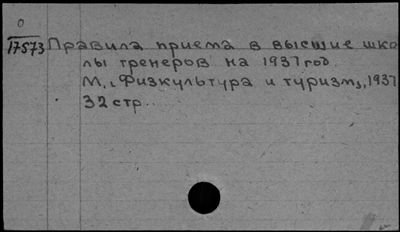 0
17573 Правила приема в высшие шко
лы тренеров на 1937 год.
М., "Физкультура и туризм", 1937
32 стр..